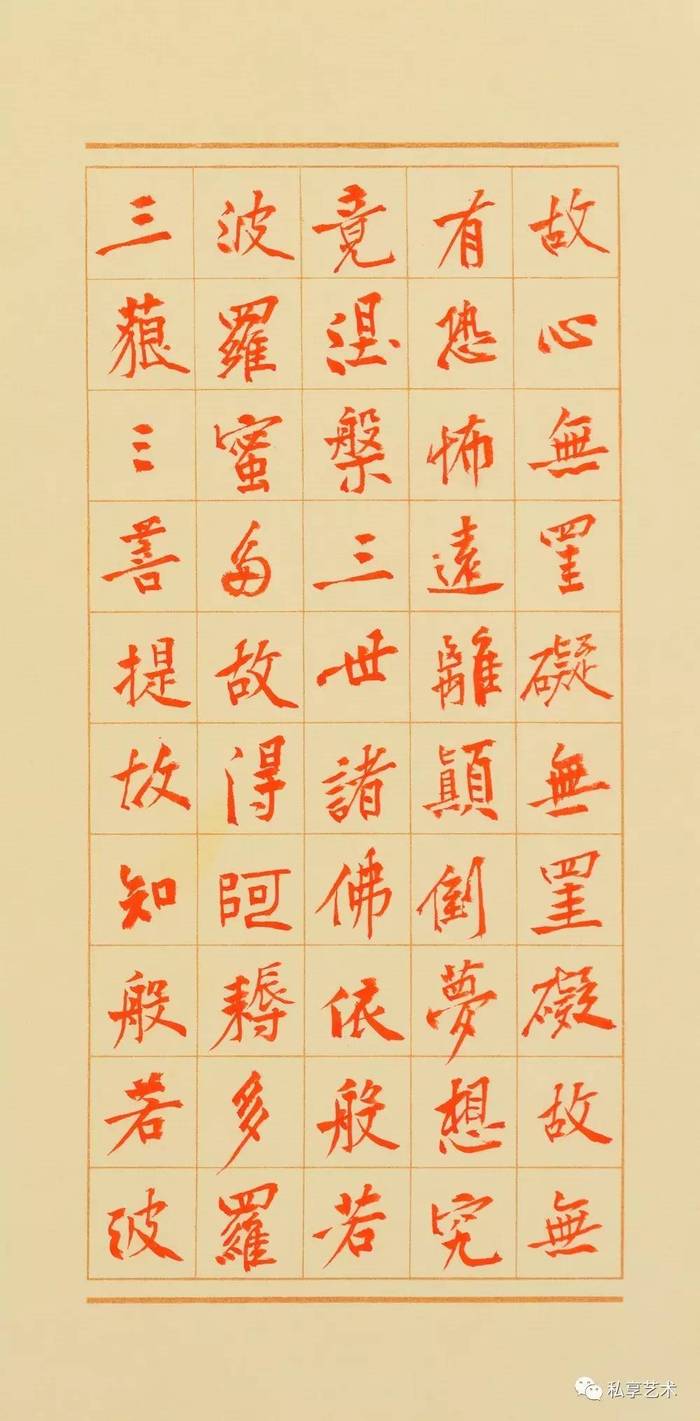 故心無罣礙無罣礙故無
有恐怖遠離顛倒夢想究
竟涅槃三世諸佛依般若
波羅蜜多故得阿耨多羅
三藐三菩提故知般若波
私享艺术